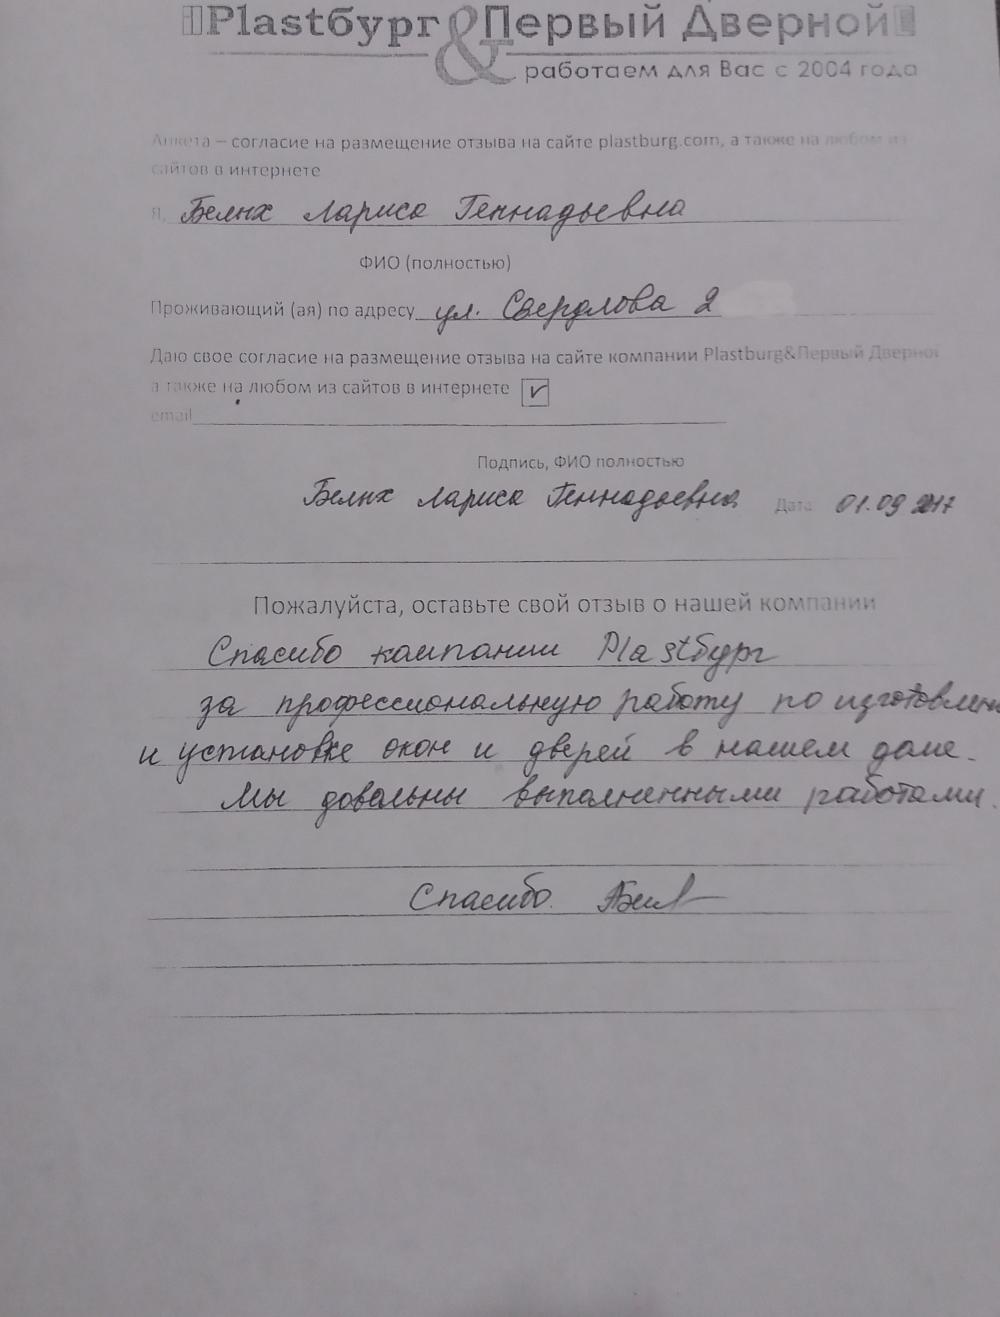 Plastбург & Первый Дверной
работаем для Вас с 2004 года
Анкета – согласие на размещение отзыва на сайте plastburg.com, а также на любом из
сайтов в интернете
Я, Белых Лариса Геннадьевна
ФИО (полностью)
Проживающий (ая) по адресу ул. Свердлова 2
Даю свое согласие на размещение отзыва на сайте компании Plastburg&Первый Дверной
а также на любом из сайтов в интернете
email
Подпись, ФИО полностью
Белых Лариса Геннадьевна Дата 01.09 2017
Пожалуйста, оставьте свой отзыв о нашей компании
Спасибо компании Plastбург
за профессиональную работу по изготовлен
и установке окон и дверей в нашем доме.
Мы довольны выполненными работами.
Спасибо.